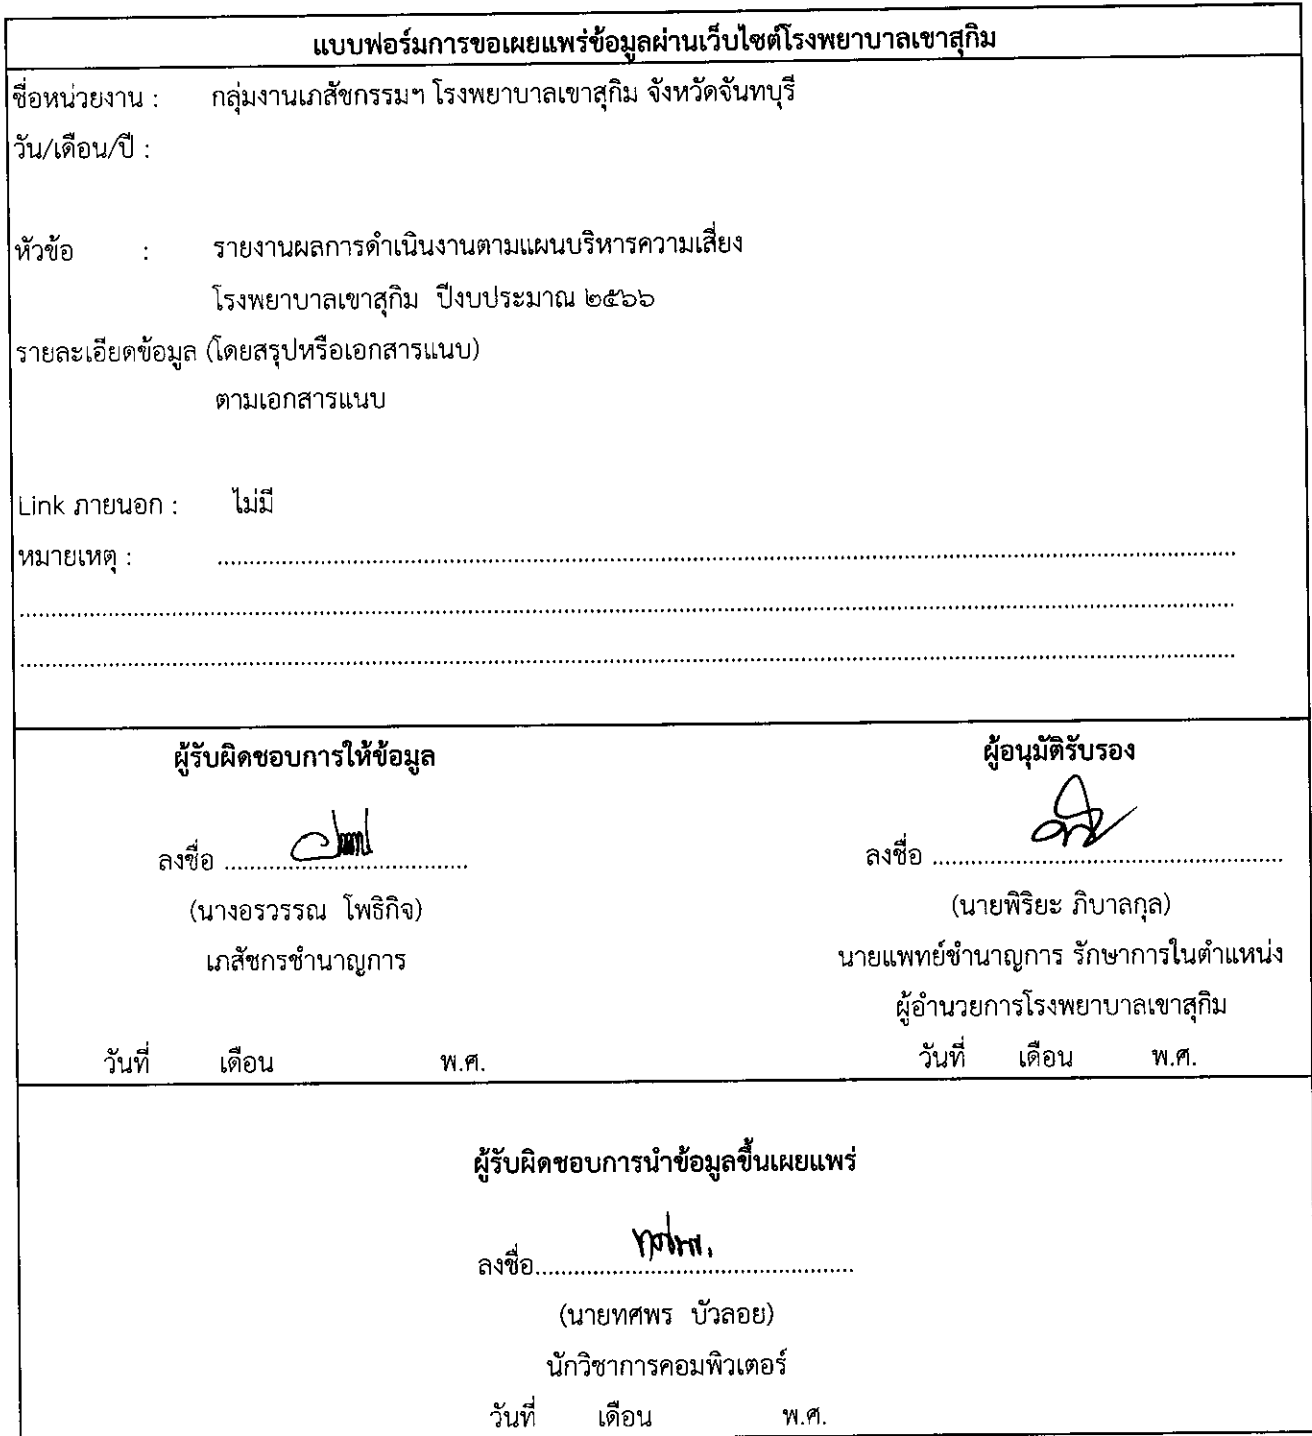 แบบฟอร์มการขอเผยแพร่ข้อมูลผ่านเว็บไซต์โรงพยาบาลเขาสุกิม
ชื่อหน่วยงาน : กลุ่มงานเภสัชกรรมฯ โรงพยาบาลเขาสุกิม จังหวัดจันทบุรี
วัน/เดือน/ปี :
หัวข้อ : รายงานผลการดำเนินงานตามแผนบริหารความเสี่ยง
โรงพยาบาลเขาสุกิม ปีงบประมาณ ๒๕๖๖
รายละเอียดข้อมูล (โดยสรุปหรือเอกสารแนบ)
ตามเอกสารแนบ
Link ภายนอก : ไม่มี
หมายเหตุ :
ผู้รับผิดชอบการให้ข้อมูล
ลงชื่อ
(นางอรวรรณ โพธิกิจ)
เภสัชกรชำนาญการ
วันที่ เดือน พ.ศ.
ผู้อนุมัติรับรอง
ลงชื่อ
(นายพิริยะ ภิบาลกุล)
นายแพทย์ชำนาญการ รักษาการในตำแหน่ง
ผู้อำนวยการโรงพยาบาลเขาสุกิม
วันที่ เดือน พ.ศ.
ผู้รับผิดชอบการนำข้อมูลขึ้นเผยแพร่
ลงชื่อ ทศพร.
(นายทศพร บัวลอย)
นักวิชาการคอมพิวเตอร์
วันที่ เดือน พ.ศ.